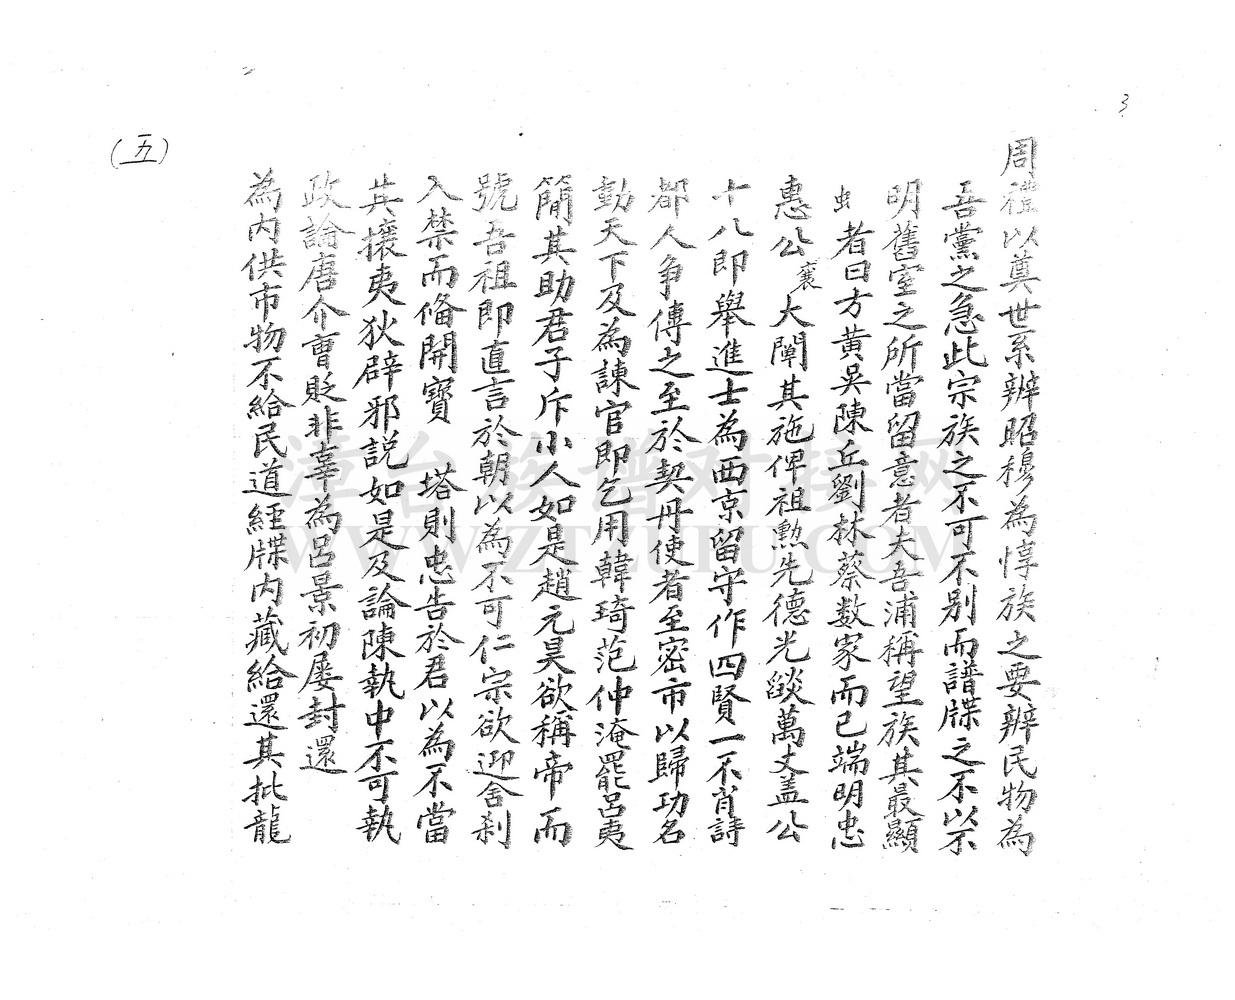 3
(五)
周禮以奠世系辨昭穆為惇族之要辨民物為
吾黨之急此宗族之不可不別而譜牒之不以不
明舊室之所當留意者夫吾浦稱望族其最顯
者曰方黃吳陳丘劉林蔡数家而已端明忠
惠公襄大闡其施俾祖勲先德光燄萬丈盖公
十八即舉進士為西京留守作四賢一不肖詩
都人争傳之至於契丹使者至密市以歸功名
動天下及為諫官即乞用韓琦范仲淹罷呂夷
簡其助君子斥小人如是趙元昊欲稱帝而
號吾祖即直言於朝以為不可仁宗欲迎舍利
入禁而脩開寶 塔則忠告於君以為不當
其攘夷狄辟邪説如是及論陳執中不可執
政論唐介曹貶非辜為呂景初屡封還
為内供市物不給民道經牒内藏給還其批龍
漳台族谱对接网
WWW.ZTZUPU.COM